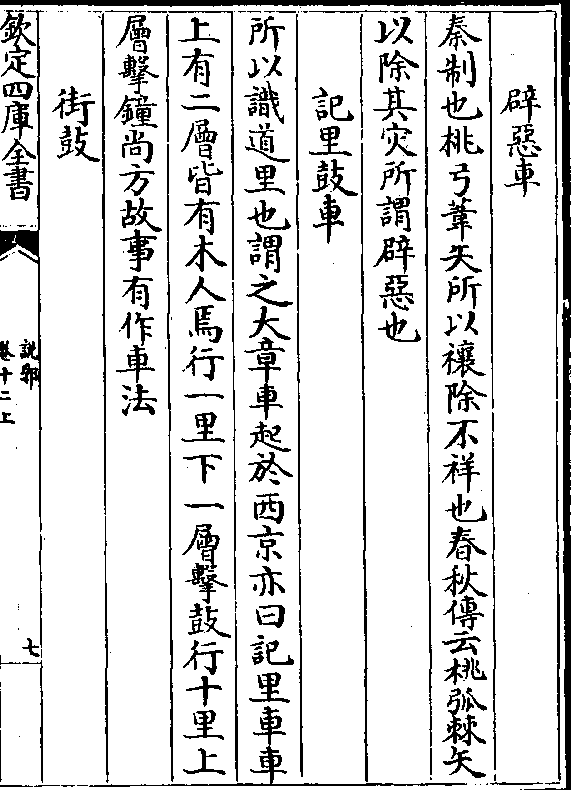 辟惡車
秦制也桃弓葦矢所以禳除不祥也春秋傳云桃弧棘矢
以除其灾所謂辟惡也
記里鼓車
所以識道里也謂之大章車起於西京亦曰記里車車
上有二層皆有木人焉行一里下一層擊鼓行十里上
層擊鐘尚方故事有作車法
街鼓
欽定四庫全書
說郛
卷十二上
七